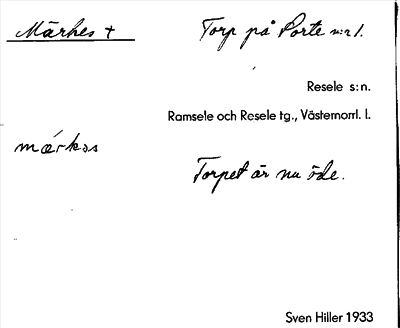 Märkes +
Torp på Porte nr 1.
Resele s:n.
Ramsele och Resele tg., Västernorrl. l.
märkəs
Torpet är nu öde.
Sven Hiller 1933